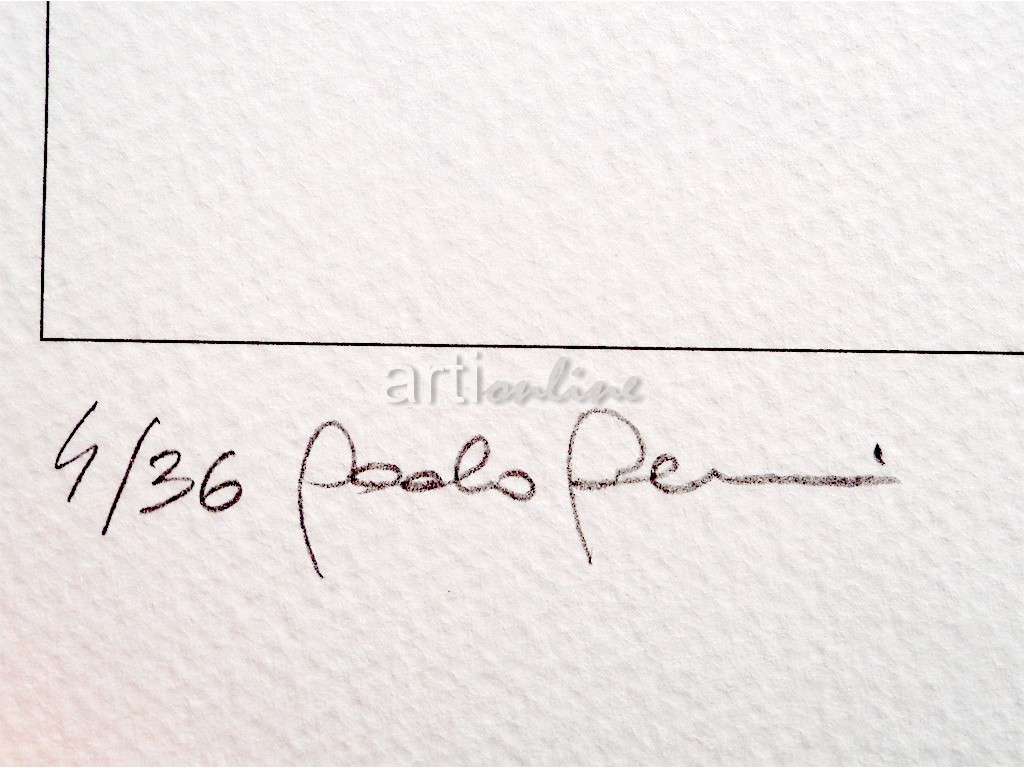 artionline
4/36 Paolo